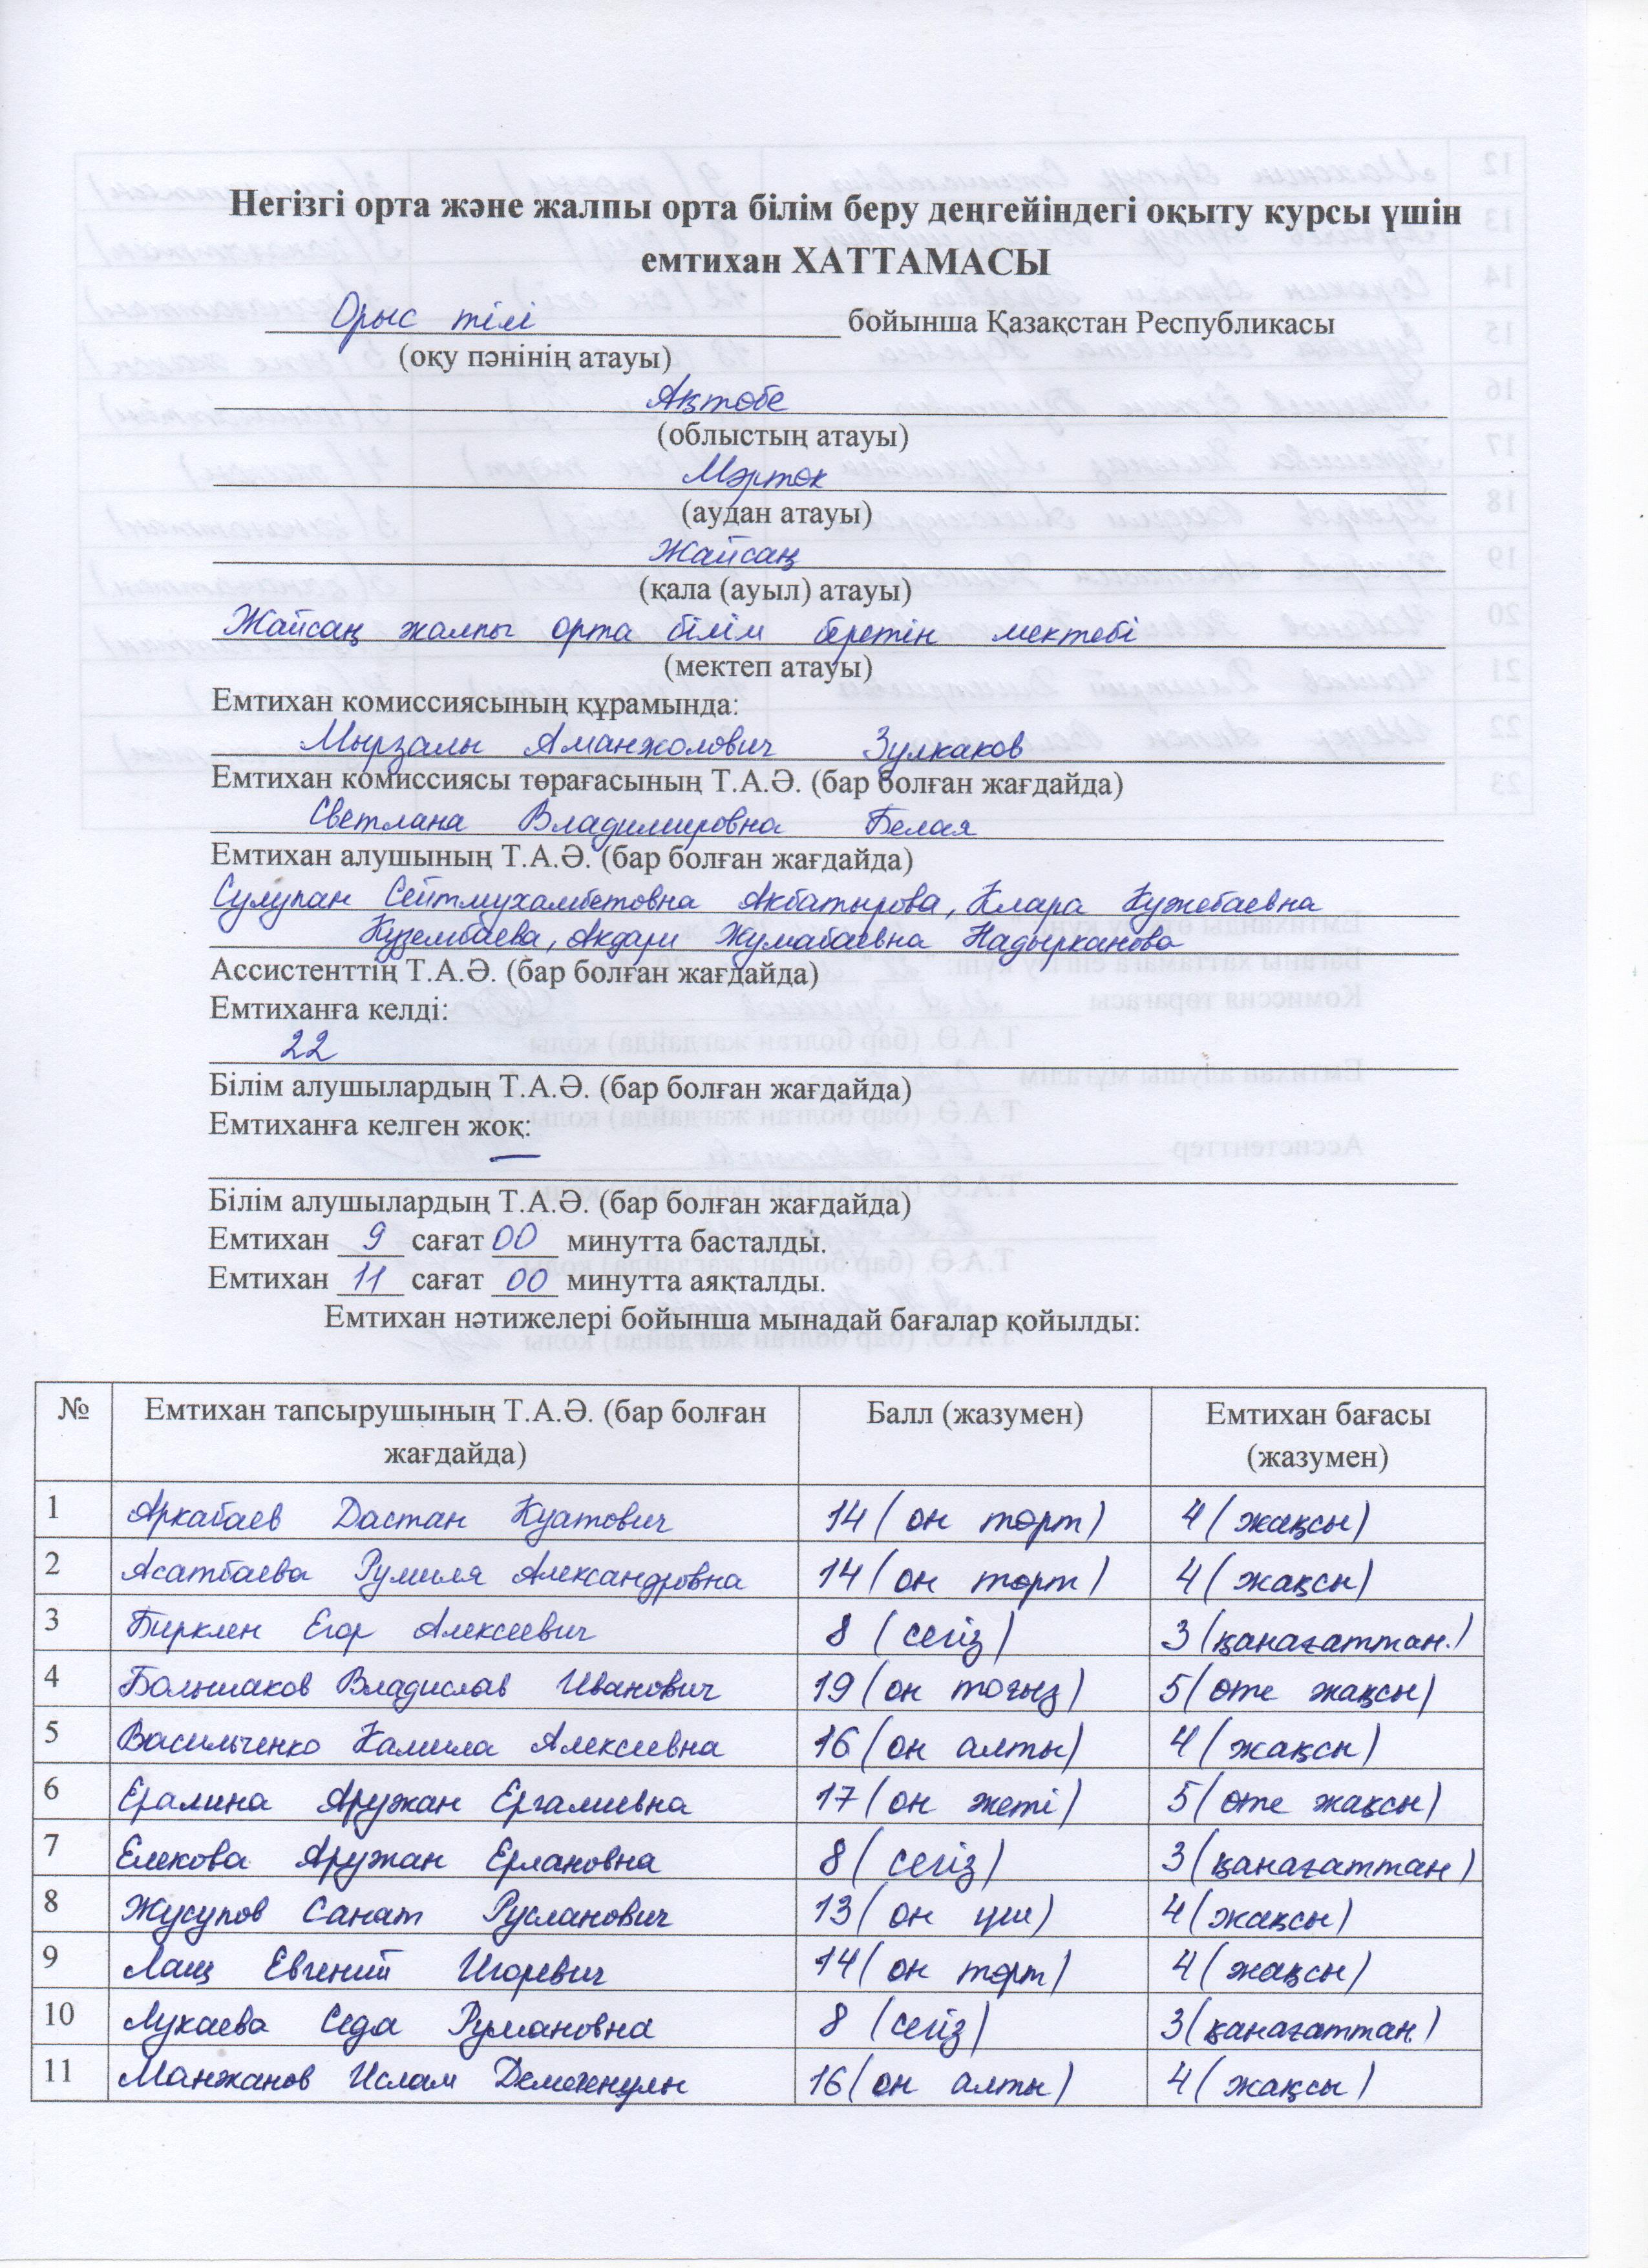 Негізгі орта және жалпы орта білім беру деңгейіндегі оқыту курсы үшін
емтихан ХАТТАМАСЫ
Орыс тілі бойынша Қазақстан Республикасы
(оқу пәнінің атауы)
Ақтөбе
(облыстың атауы)
Мәртөк
(аудан атауы)
Жайсаң
(қала (ауыл) атауы)
Жайсаң жалпы орта білім беретін мектебі
(мектеп атауы)
Емтихан комиссиясының құрамында:
Мырзалы Аманжолович Зулкаков
Емтихан комиссиясы төрағасының Т.А.Ә. (бар болған жағдайда)
Светлана Владимировна Белая
Емтихан алушының Т.А.Ә. (бар болған жағдайда)
Сулупан Сейтмухамбетовна Акбатырова, Клара Кужебаевна
Кузембаева, Акдари Жумабаевна Надырханова
Ассистенттің Т.А.Ә. (бар болған жағдайда)
Емтиханға келді:
22
Білім алушылардың Т.А.Ә. (бар болған жағдайда)
Емтиханға келген жоқ:
—
Білім алушылардың Т.А.Ә. (бар болған жағдайда)
Емтихан 9 сағат 00 минутта басталды.
Емтихан 11 сағат 00 минутта аяқталды.
Емтихан нәтижелері бойынша мынадай бағалар қойылды:
№ Емтихан тапсырушының Т.А.Ә. (бар болған жағдайда) Балл (жазумен) Емтихан бағасы (жазумен)
1 Аркабаев Дастан Куатович 14 (он төрт) 4 (жақсы)
2 Асатбаева Румиля Александровна 14 (он төрт) 4 (жақсы)
3 Бирклен Егор Алексеевич 8 (сегіз) 3 (қанағаттан.)
4 Большаков Владислав Иванович 19 (он тоғыз) 5 (өте жақсы)
5 Васильченко Камила Алексеевна 16 (он алты) 4 (жақсы)
6 Ералина Аружан Ергалиевна 17 (он жеті) 5 (өте жақсы)
7 Елекова Аружан Ерлановна 8 (сегіз) 3 (қанағаттан)
8 Жусупов Санат Русланович 13 (он үш) 4 (жақсы)
9 Лащ Евгений Игоревич 14 (он төрт) 4 (жақсы)
10 Лукаева Седа Румановна 8 (сегіз) 3 (қанағаттан)
11 Манжанов Ислам 16 (он алты) 4 (жақсы)